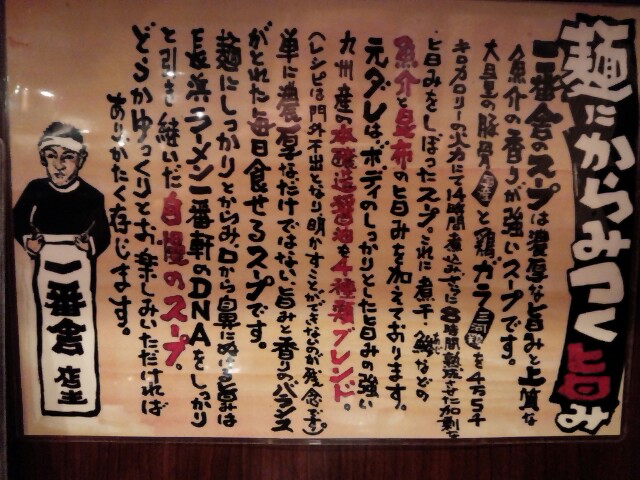 麺にからみつく旨み
一番舎のスープは濃厚な旨みと上質な
魚介の香りが強いスープです。
大量の豚骨と鶏ガラを4万54
キロカロリーの火力にて14時間煮込み、さらに8時間熟成させた加刺な
旨みをしぼったスープ。これに煮干、鯵などの
魚介と昆布の旨みを加えております。
元ダレは、ボディのしっかりとした旨みの強い
九州産の本醸造醤油を4種類ブレンド。
(レシピは門外不出となり明かすことができないのが残念です)
単に濃厚なだけではない旨みと香りのバランス
がとれた毎日食せるスープです。
麺にしっかりとからみ、口から鼻にぬける旨みは
長浜ラーメン一番軒のDNAをしっかり
と引き継いだ自慢のスープ。
どうかゆっくりとお楽しみいただければ
ありがたく存じます。
一番舎 店主